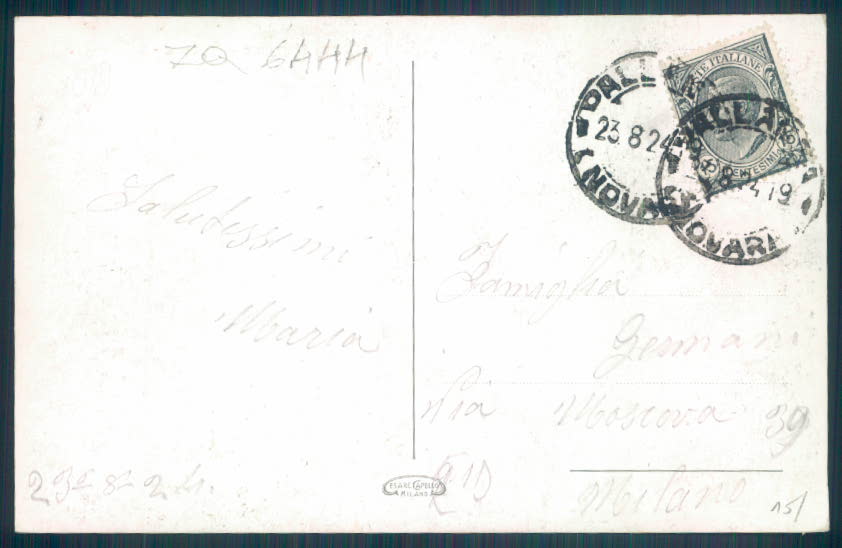 ZQ 6444
Salutissimi
Maria
23-8-24.
POSTE ITALIANE
CENTESIMI
PALLANZA
23.8.24
NOVARA
PALLANZA
8.24 19
NOVARA
Famiglia
Germani
Via Moscova 39
Milano
CESARE CAPELLO
MILANO
15/